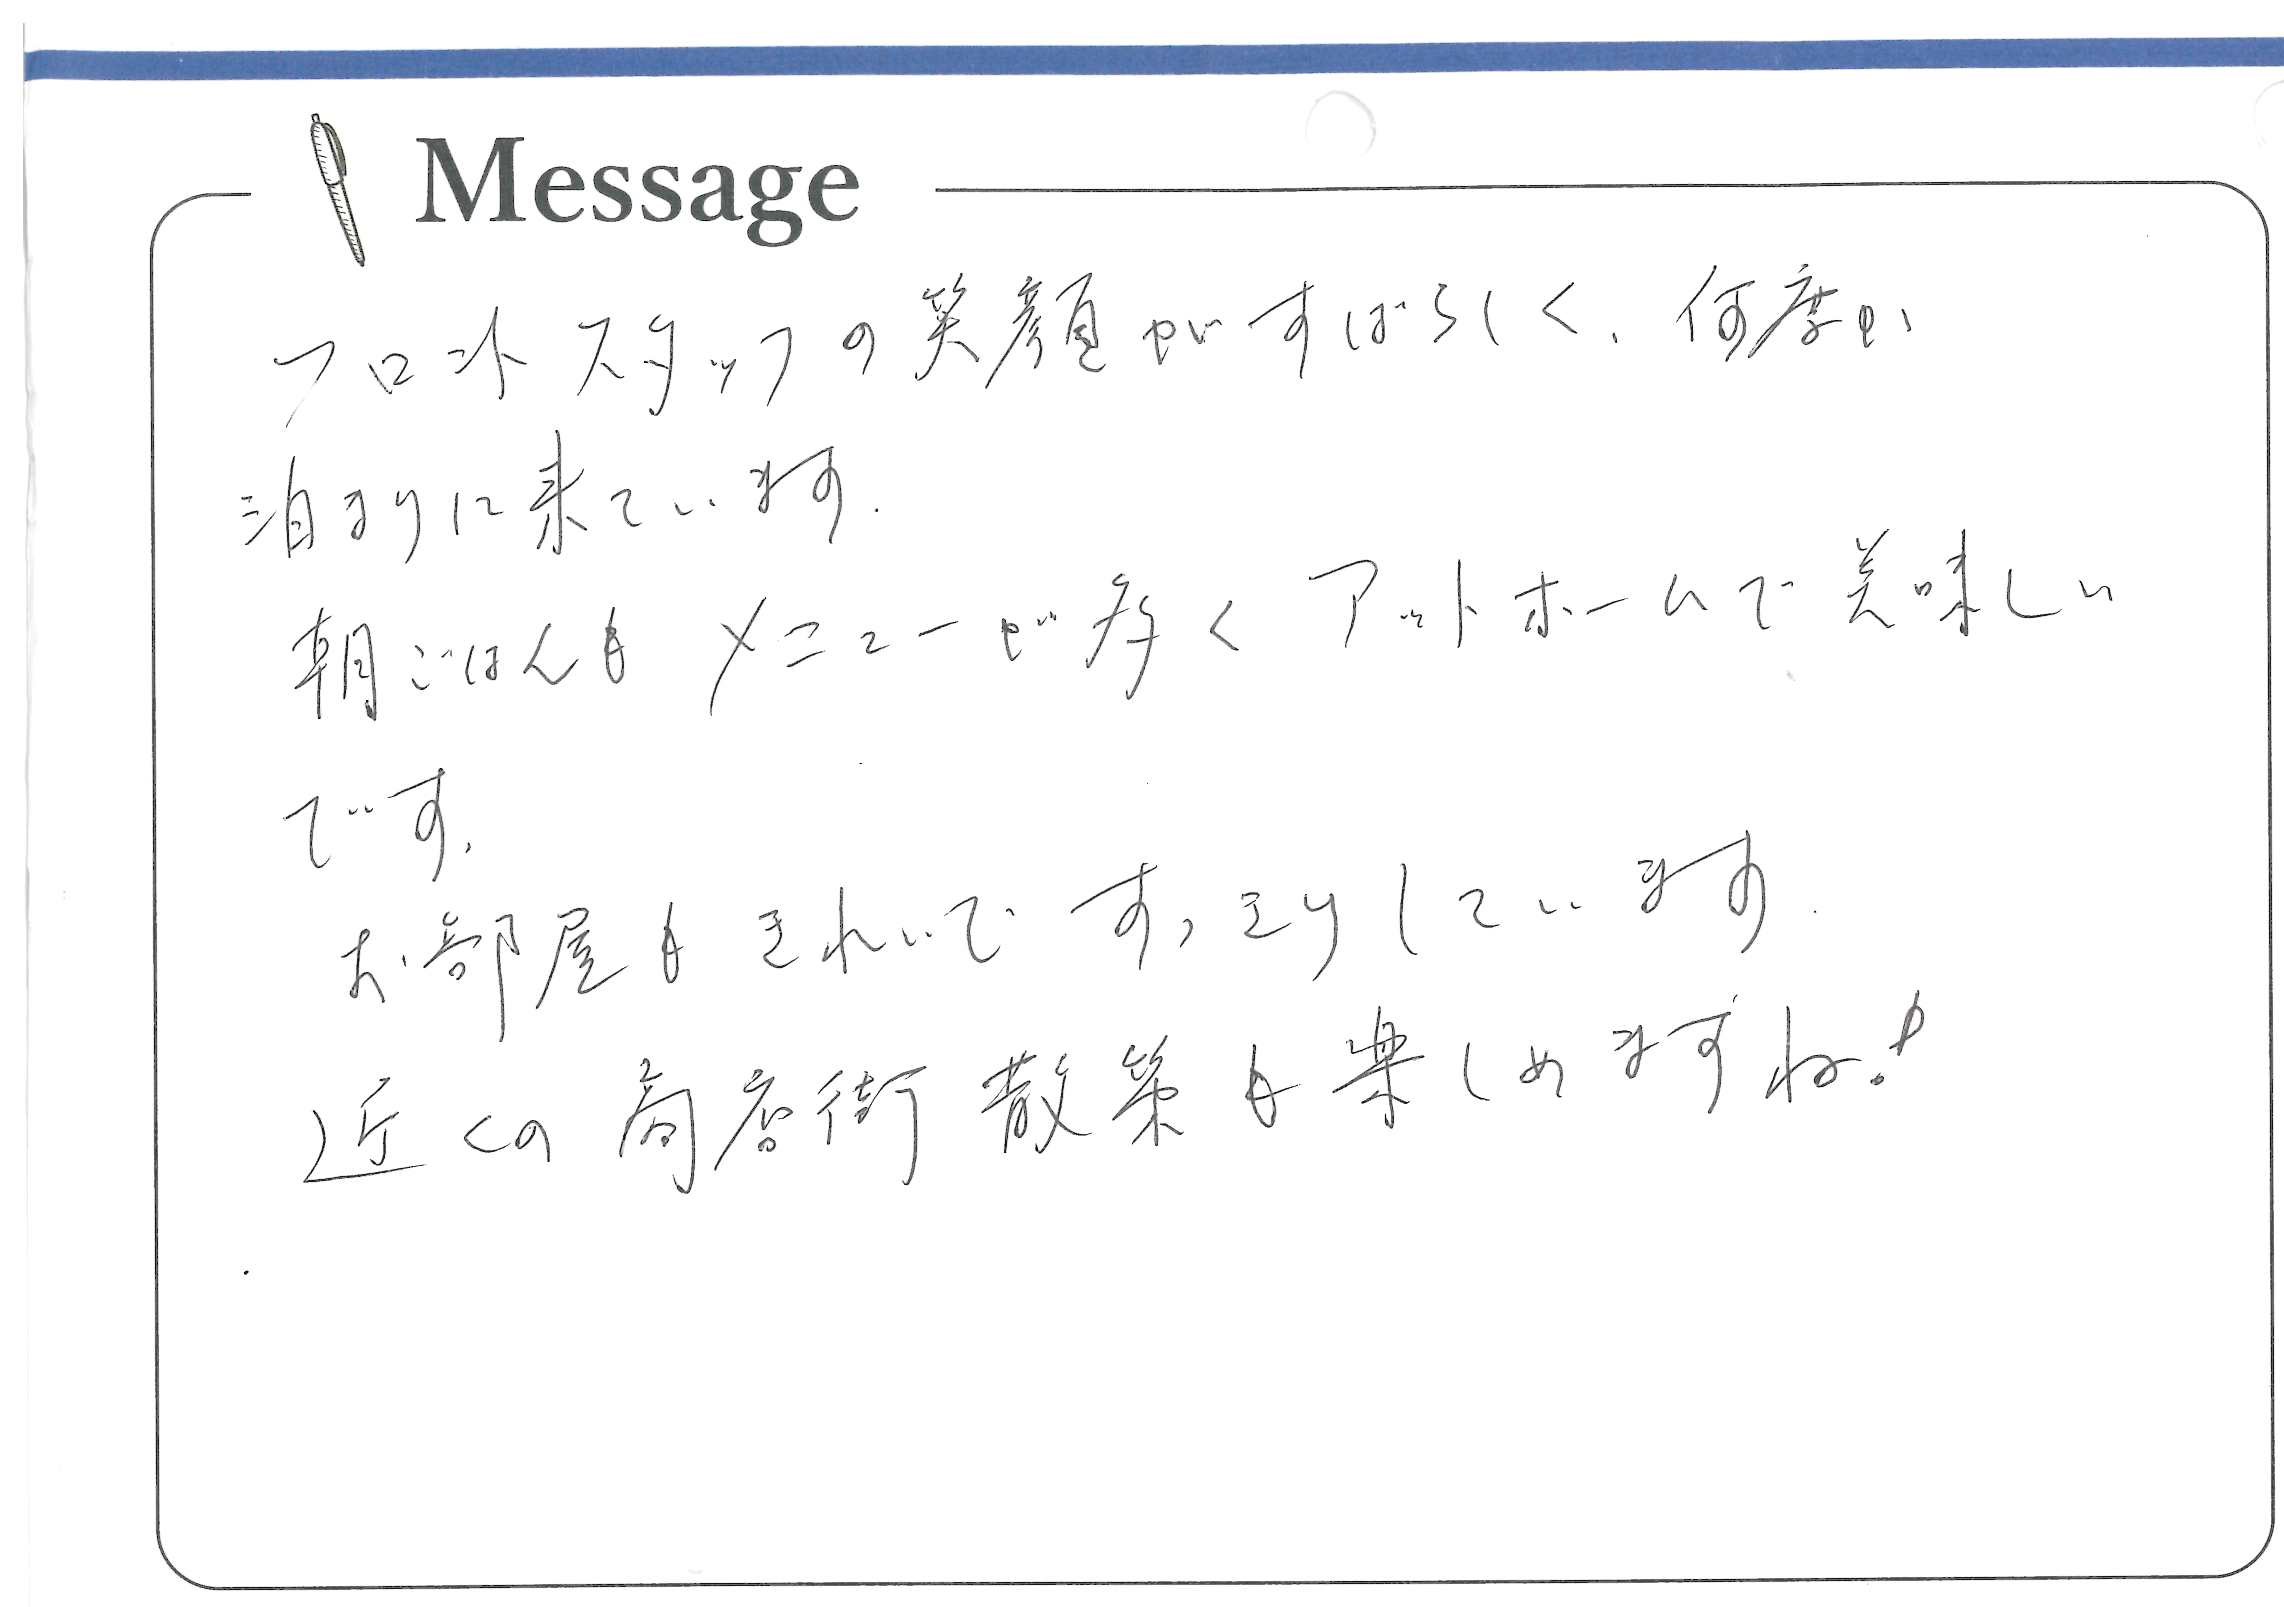 Message
フロントスタッフの笑顔がすばらしく、何度か
泊まりに来ています.
朝ごはんも メニューが多く アットホームで美味しい
です.
お部屋も きれいで すっきりしています.
近くの 商店街 散策も楽しめますね!